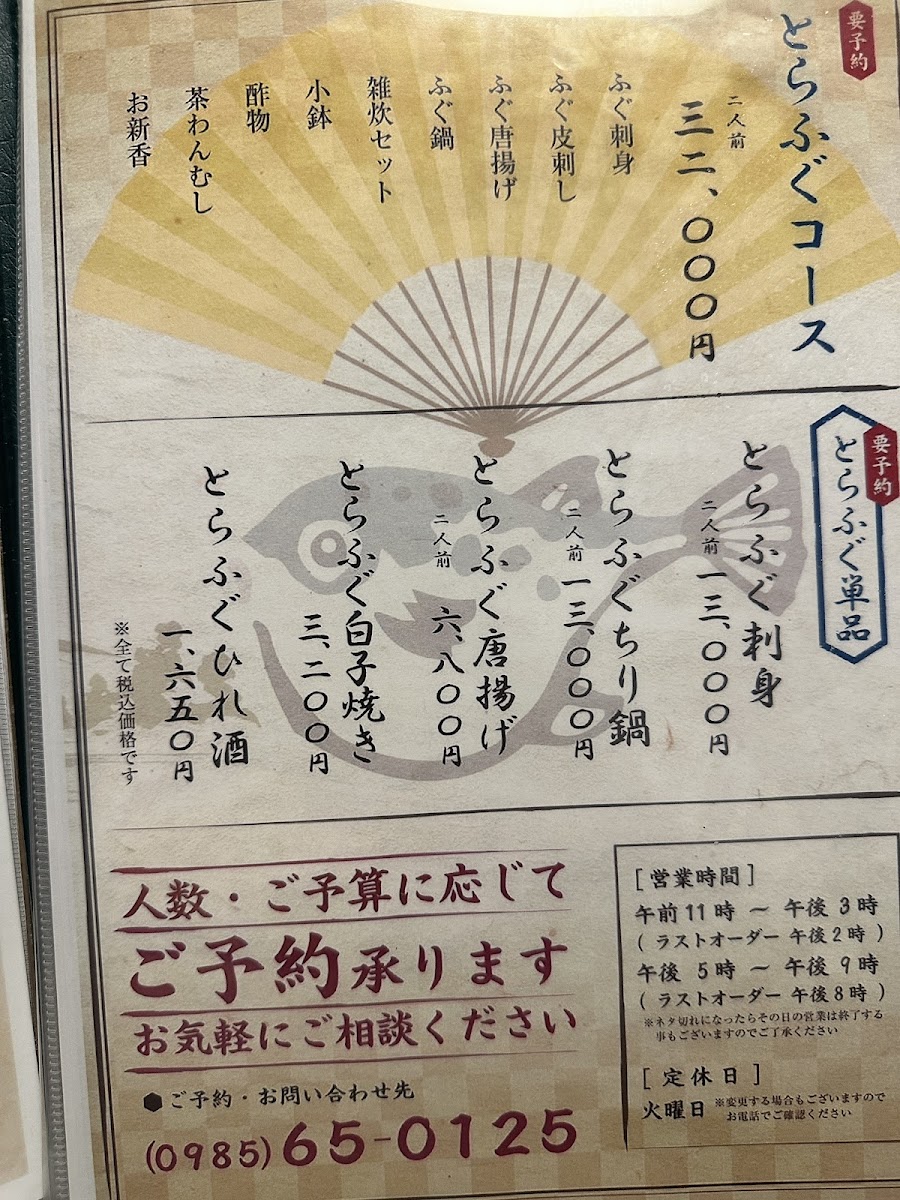 要予約
とらふぐコース
二人前
三二、〇〇〇円
ふぐ刺身
ふぐ皮刺し
ふぐ唐揚げ
ふぐ鍋
雑炊セット
小鉢
酢物
茶わんむし
お新香
要予約
とらふぐ単品
とらふぐ刺身
二人前 一三、〇〇〇円
とらふぐちり鍋
二人前 一三、〇〇〇円
とらふぐ唐揚げ
二人前 六、八〇〇円
とらふぐ白子焼き
三、二〇〇円
とらふぐひれ酒
一、六五〇円
※全て税込価格です
人数・ご予算に応じて
ご予約承ります
お気軽にご相談ください
●ご予約・お問い合わせ先
(0985)65-0125
[営業時間]
午前11時 〜 午後3時
(ラストオーダー 午後2時)
午後5時 〜 午後9時
(ラストオーダー 午後8時)
※ネタ切れになったらその日の営業は終了する
事もございますのでご了承ください
[定休日]
火曜日 ※変更する場合もございますので
お電話でご確認ください